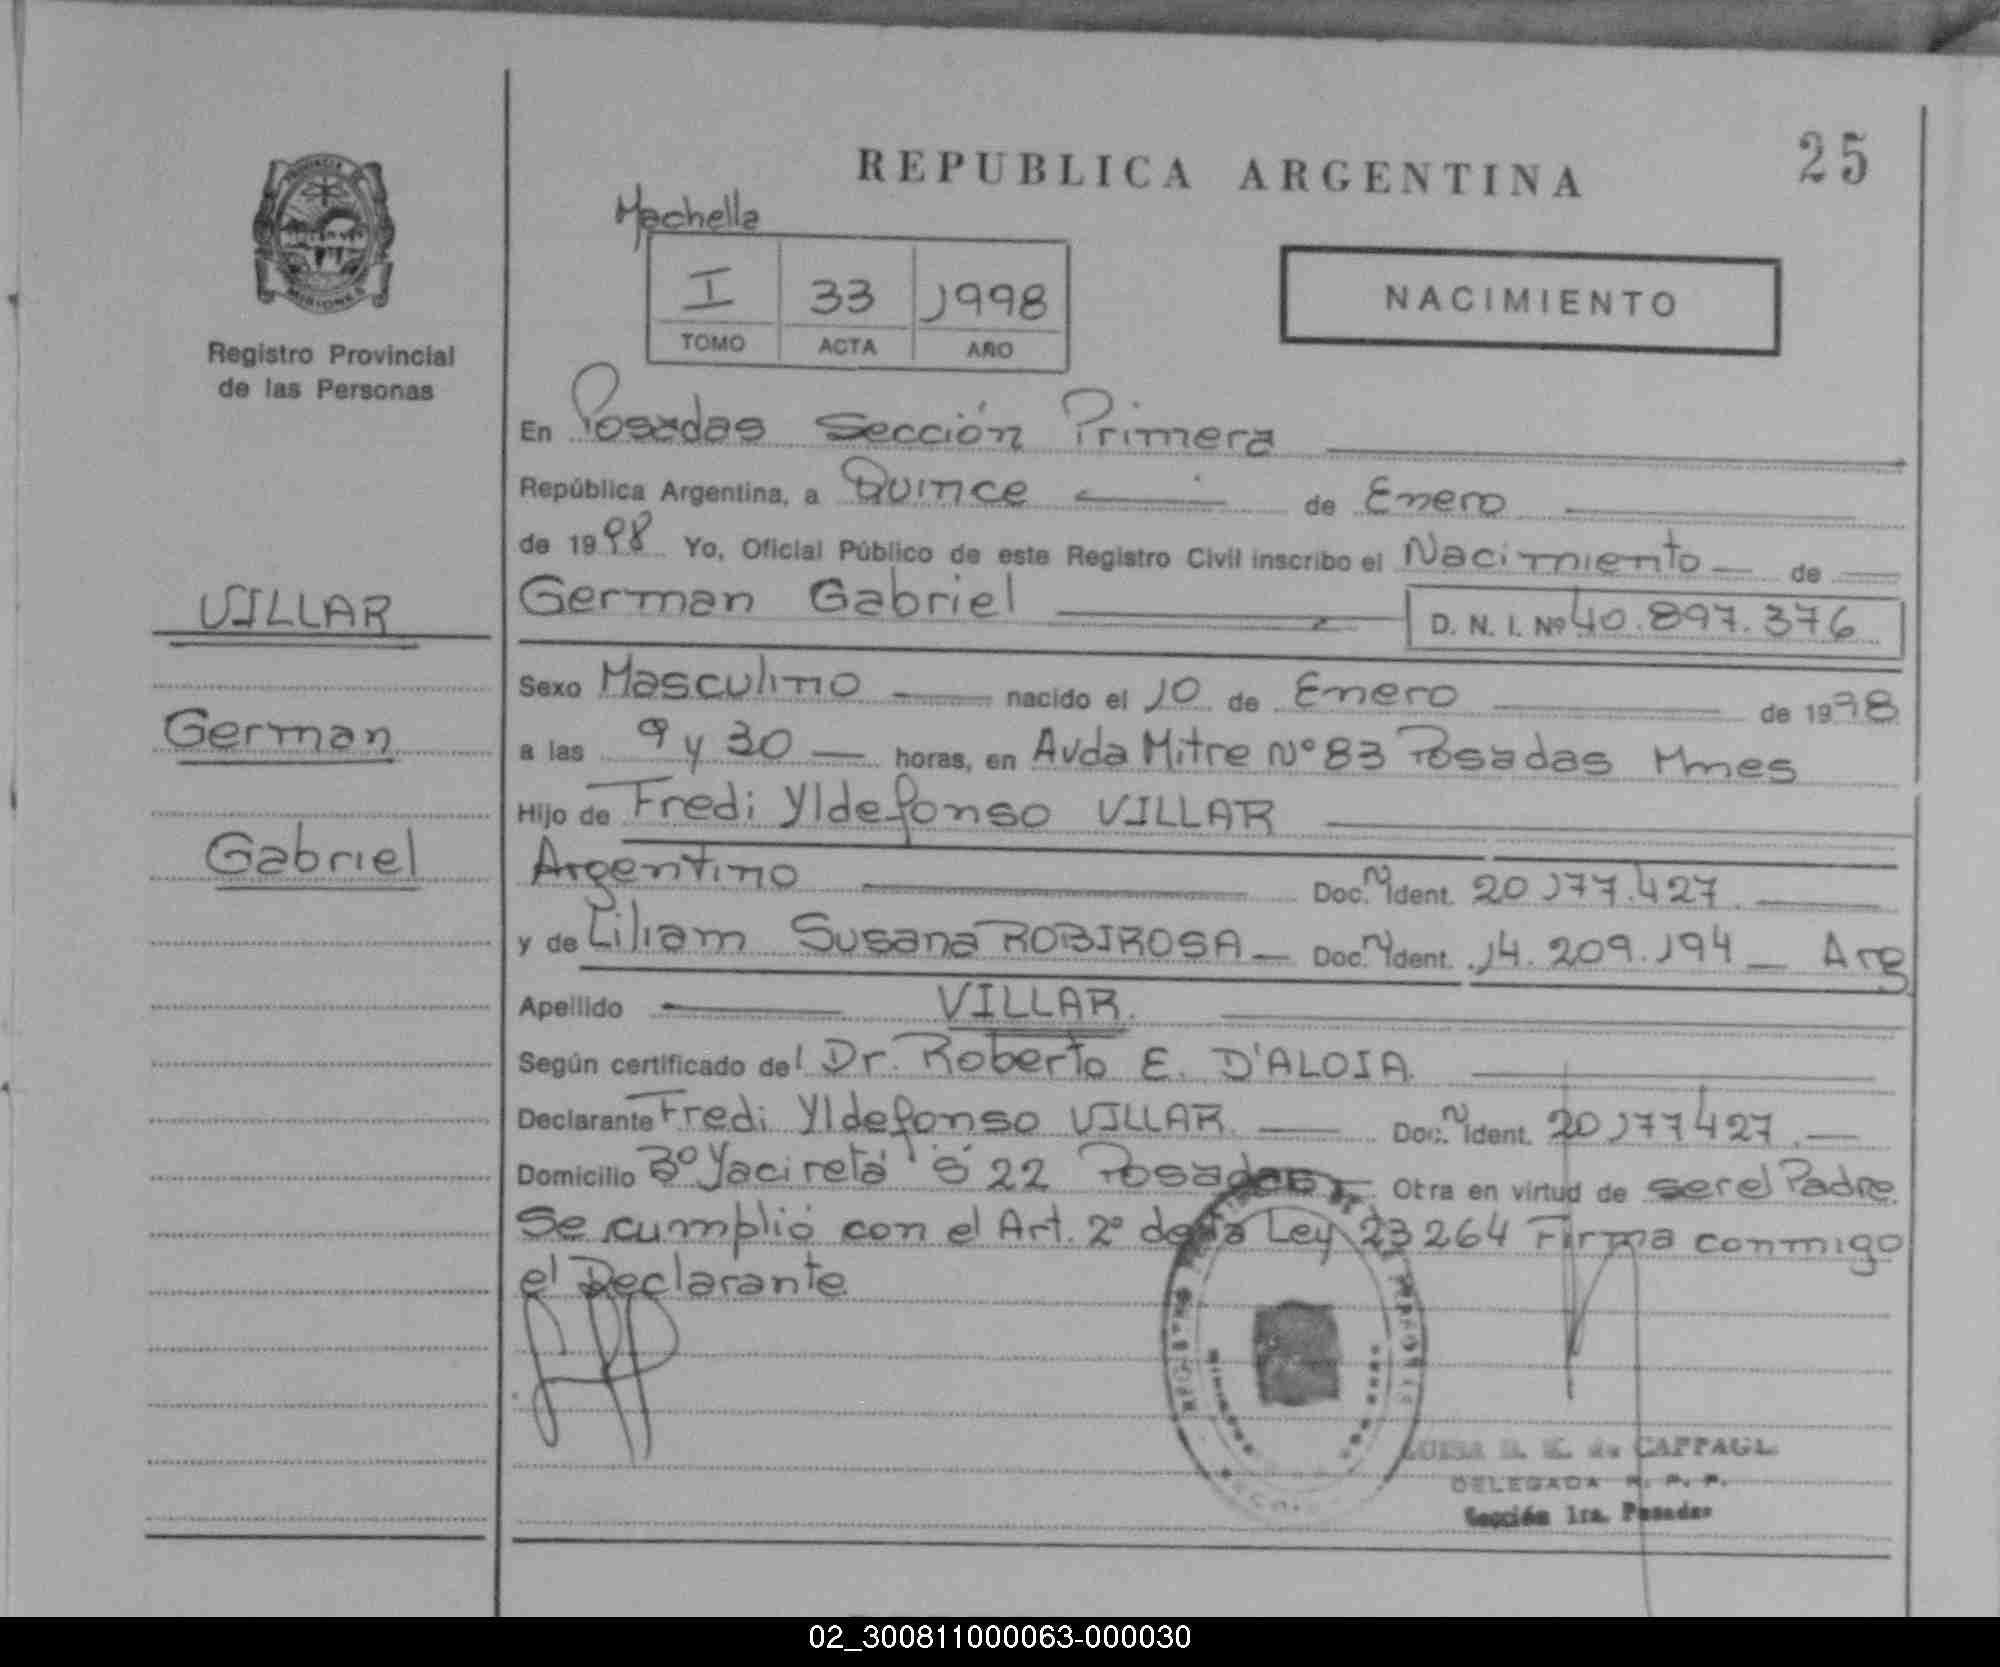 REPUBLICA ARGENTINA
25
PROVINCIA
MISIONES
Registro Provincial
de las Personas
Machella
I 33 1998
TOMO ACTA AÑO
NACIMIENTO
En Posadas Sección Primera
República Argentina, a Quince de Enero
de 1998 Yo, Oficial Público de este Registro Civil inscribo el Nacimiento de
German Gabriel D. N. I. Nº 40.897.376
VILLAR
German
Gabriel
Sexo Masculino nacido el 10 de Enero de 1998
a las 9 y 30 horas, en Avda Mitre Nº 83 Posadas Mnes
Hijo de Fredi Yldefonso VILLAR
Argentino Doc. N Ident. 20.177.427
y de Liliam Susana ROBIROSA Doc. N Ident. 14.209.194 Arg
Apellido VILLAR.
Según certificado del Dr. Roberto E. D'ALOIA.
Declarante Fredi Yldefonso VILLAR Doc. N Ident. 20177427
Domicilio Bº Yacireta S 22 Posadas Otra en virtud de ser el Padre
Se cumplió con el Art. 2º de la Ley 23264 Firma conmigo
el Declarante
DELEGADA R. P. P.
Sección 1ra. Posadas
02_300811000063-000030